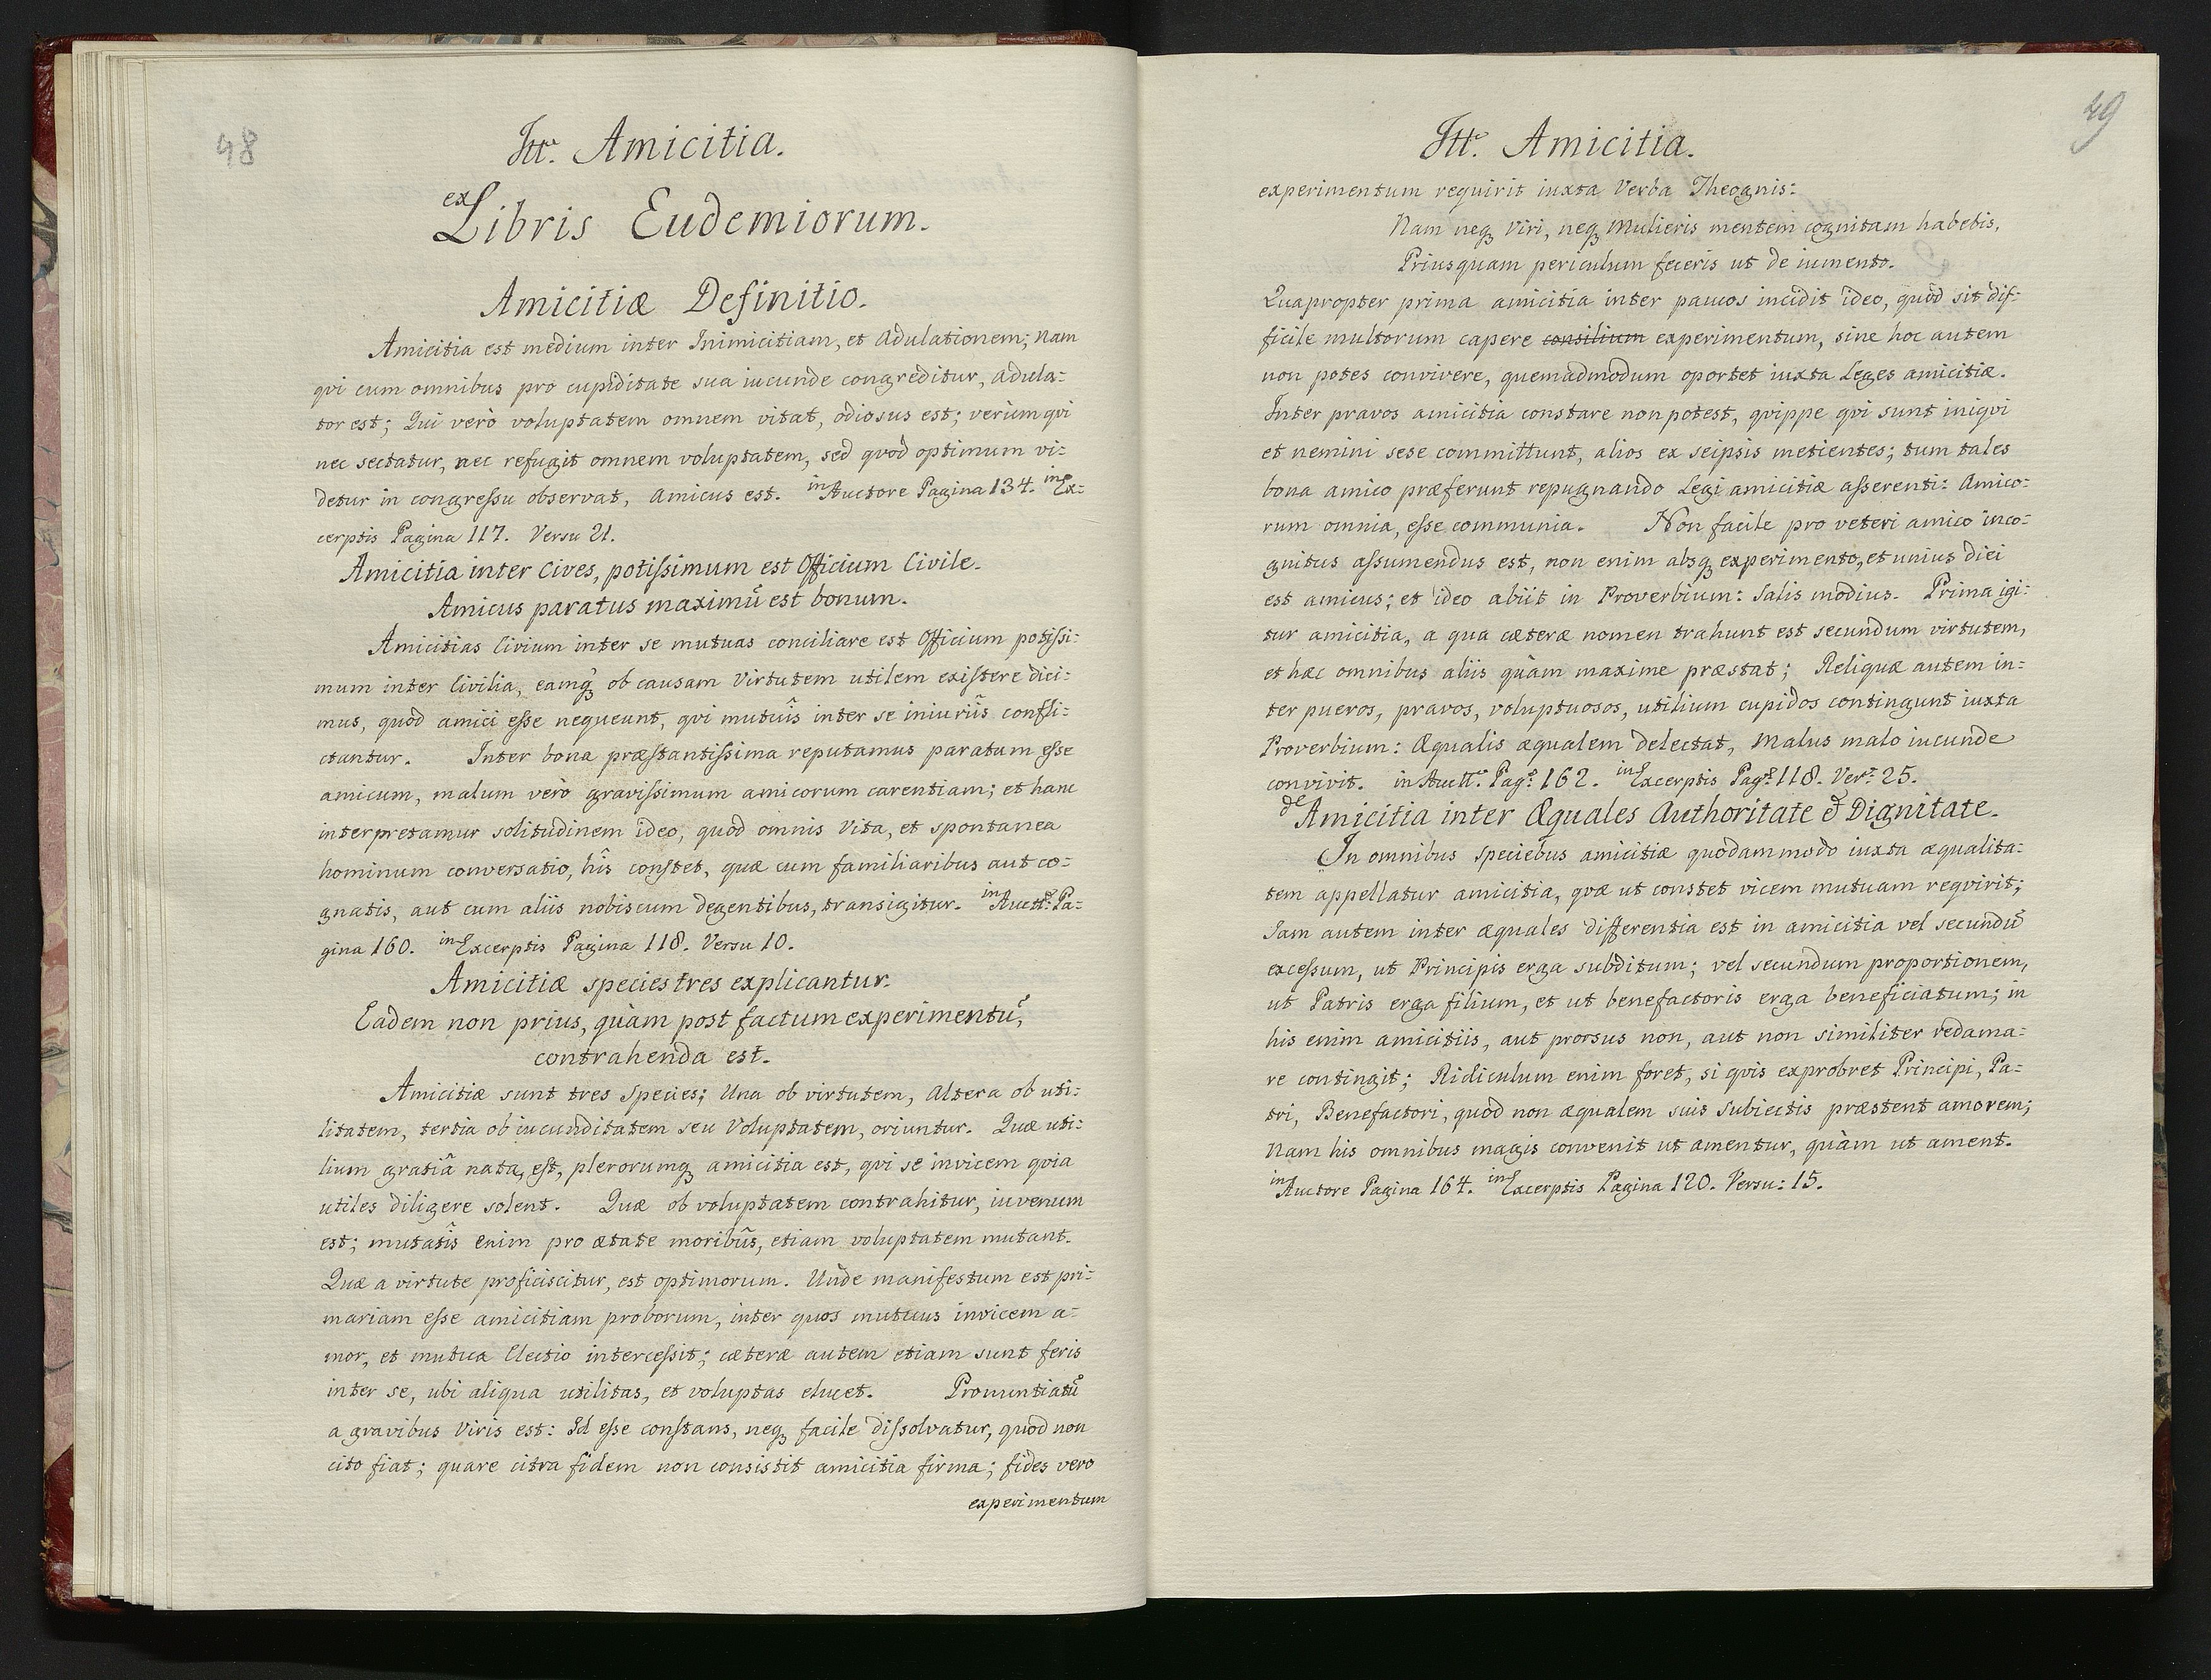 48
Itt. Amicitia.
ex Libris Eudemiorum.
Amicitiæ Definitio.
Amicitia est medium inter Inimicitiam, et Adulationem; Nam
qvi cum omnibus pro cupiditate sua iucunde congreditur, Adula:
tor est; Qui verò voluptatem omnem vitat, odiosus est; verùm qvi
nec sectatur, nec refugit omnem voluptatem, sed qvod optimum vi:
detur in congressu observat, Amicus est. in Auctore Pagina 134. in Ex:
cerptis Pagina 117. Versu 21.
Amicitia inter Cives, potissimum est Officium Civile.
Amicus paratus maximũ est bonum.
Amicitias Civium inter se mutuas conciliare est Officium potissi:
mum inter Civilia, eamq́ʒ ob causam Virtutem utilem existere dici:
mus, quòd amici esse nequeunt, qvi mutuîs inter se iniuriîs confli:
ctantur. Inter bona præstantissima reputamus paratum esse
amicum, malum verò gravissimum amicorum carentiam; et hanc
interpretamur solitudinem ideo, quòd omnis Vita, et spontanea
hominum conversatio, hîs constet, quæ cum familiaribus aut co:
gnatis, aut cum aliis nobiscum degentibus, transigitur. in Auctt: Pa:
gina 160. in Excerptis Pagina 118. Versu 10.
Amicitiæ species tres explicantur.
Eadem non prius, quàm post factum experimentũ,
contrahenda est.
Amicitiæ sunt tres Species; Una ob virtutem, Altera ob uti:
litatem, tertia ob iucunditatem seu Voluptatem, oriuntur. Quæ uti:
lium gratiâ nata, est, plerorumqʒ amicitia est, qvi se invicem qvia
utiles diligere solent. Quæ ob voluptatem contrahitur, iuvenum
est; mutatîs enim pro ætate moribûs, etiam voluptatem mutant.
Quæ a virtute proficiscitur, est optimorum. Unde manifestum est pri:
mariam esse amicitiam proborum, inter quos mutuus invicem a:
mor, et mutua Electio intercessit; cæteræ autem etiam sunt feris
inter se, ubi aliqua utilitas, et voluptas elucet. Pronuntiatũ
a gravibus Viris est: Id esse constans, neqʒ facile dissolvatur, quod non
cito fiat; quare citra fidem non consistit amicitia firma; fides vero
experimentum
49
Itt. Amicitia.
experimentum requirit iuxta Verba Theognis:
Nam neqʒ Viri, neqʒ Mulieris mentem cognitam habebis,
Priusquam periculum feceris ut de iumento.
Quapropter prima amicitia inter paucos incidit ideo, quòd sit dif:
ficile multorum capere consilium experimentum, sine hoc autem
non potes convivere, quemadmodum oportet iuxta Leges amicitiæ.
Inter pravos amicitia constare non potest, qvippe qvi sunt iniqvi
et nemini sese committunt, alios ex seipsis metientes; tum tales
bona amico præferunt repugnando Legi amicitiæ asserenti: Amico:
rum omnia, esse communia. Non facile pro veteri amico inco:
gnitus assumendus est, non enim absqʒ experimento, et unius diei
est amicus; et ideo abiit in Proverbium: Salis modius. Prima igi:
tur amicitia, a qua cæteræ nomen trahunt est secundum virtutem,
et hæc omnibus aliis quàm maxime præstat; Reliquæ autem in:
ter pueros, pravos, voluptuosos, utilium cupidos contingunt iuxta
Proverbium: Æqualis æqualem delectat, Malus malo iucunde
convivit. in Auctt: Pag: 162. in Excerptis Pag: 118. Ver: 25.
de Amicitia inter Æquales Authoritate & Dignitate.
In omnibus Speciebus amicitiæ quodammodo iuxta æqualita:
tem appellatur amicitia, qvæ ut constet vicem mutuam reqvirit;
Iam autem inter æquales differentia est in amicitia vel secundũ
excessum, ut Principis erga subditum; vel secundum proportionem,
ut Patris erga filium, et ut benefactoris erga beneficiatum; in
his enim amicitiis, aut prorsus non, aut non similiter redama:
re contingit; Ridiculum enim foret, si qvis exprobret Principi, Pa:
tri, Benefactori, quòd non æqualem suis Subiectis præstent amorem;
Nam his omnibus magis convenit ut amentur, quàm ut ament.
in Auctore Pagina 164. in Excerptis Pagina 120. Versu: 15.